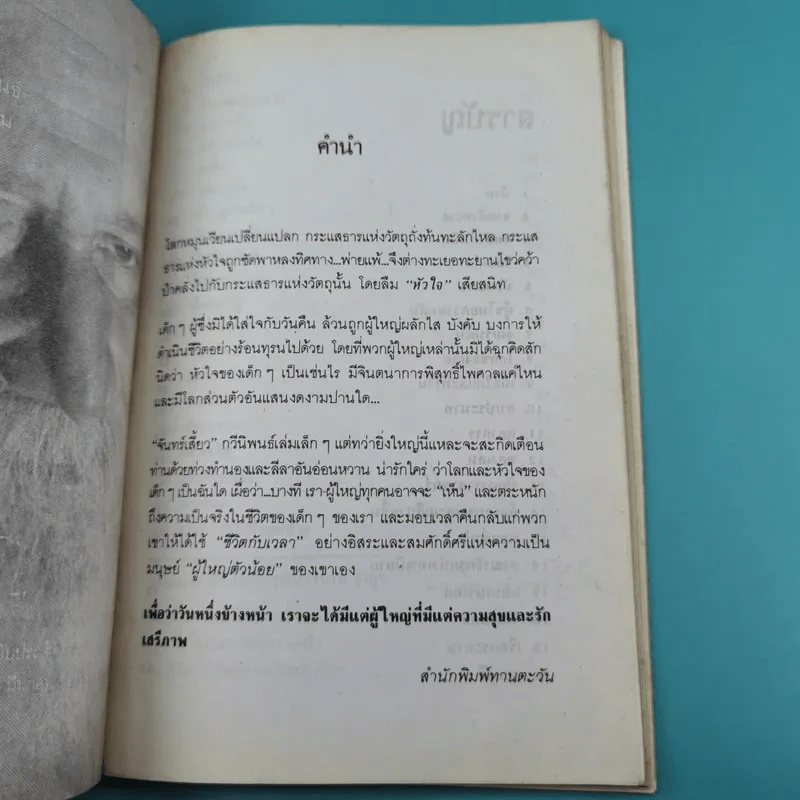 คำนำ
โลกหมุนเวียนเปลี่ยนแปลก กระแสธารแห่งวัตถุถั่งท้นทะลักไหล กระแส
ธารแห่งหัวใจถูกซัดพาหลงทิศทาง...พ่ายแพ้...จึงต่างทะเยอทะยานไขว่คว้า
บ้าคลั่งไปกับกระแสธารแห่งวัตถุนั้น โดยลืม “หัวใจ” เสียสนิท
เด็ก ๆ ผู้ซึ่งมิได้ใส่ใจกับวันคืน ล้วนถูกผู้ใหญ่ผลักไส บังคับ บงการให้
ดำเนินชีวิตอย่างร้อนทุรนไปด้วย โดยที่พวกผู้ใหญ่เหล่านั้นมิได้ฉุกคิดสัก
นิดว่า หัวใจของเด็ก ๆ เป็นเช่นไร มีจินตนาการพิสุทธิ์ไพศาลแค่ไหน
และมีโลกส่วนตัวอันแสนงดงามปานใด...
“จันทร์เสี้ยว” กวีนิพนธ์เล่มเล็ก ๆ แต่ทว่ายิ่งใหญ่นี้แหละจะสะกิดเตือน
ท่านด้วยท่วงทำนองและลีลาอันอ่อนหวาน น่ารักใคร่ ว่าโลกและหัวใจของ
เด็ก ๆ เป็นฉันใด เผื่อว่า...บางที เรา-ผู้ใหญ่ทุกคนอาจจะ “เห็น” และตระหนัก
ถึงความเป็นจริงในชีวิตของเด็ก ๆ ของเรา และมอบเวลาคืนกลับแก่พวก
เขาให้ได้ใช้ “ชีวิตกับเวลา” อย่างอิสระและสมศักดิ์ศรีแห่งความเป็น
มนุษย์ “ผู้ใหญ่ตัวน้อย” ของเขาเอง
เพื่อว่าวันหนึ่งข้างหน้า เราจะได้มีแต่ผู้ใหญ่ที่มีแต่ความสุขและรัก
เสรีภาพ
สำนักพิมพ์ทานตะวัน